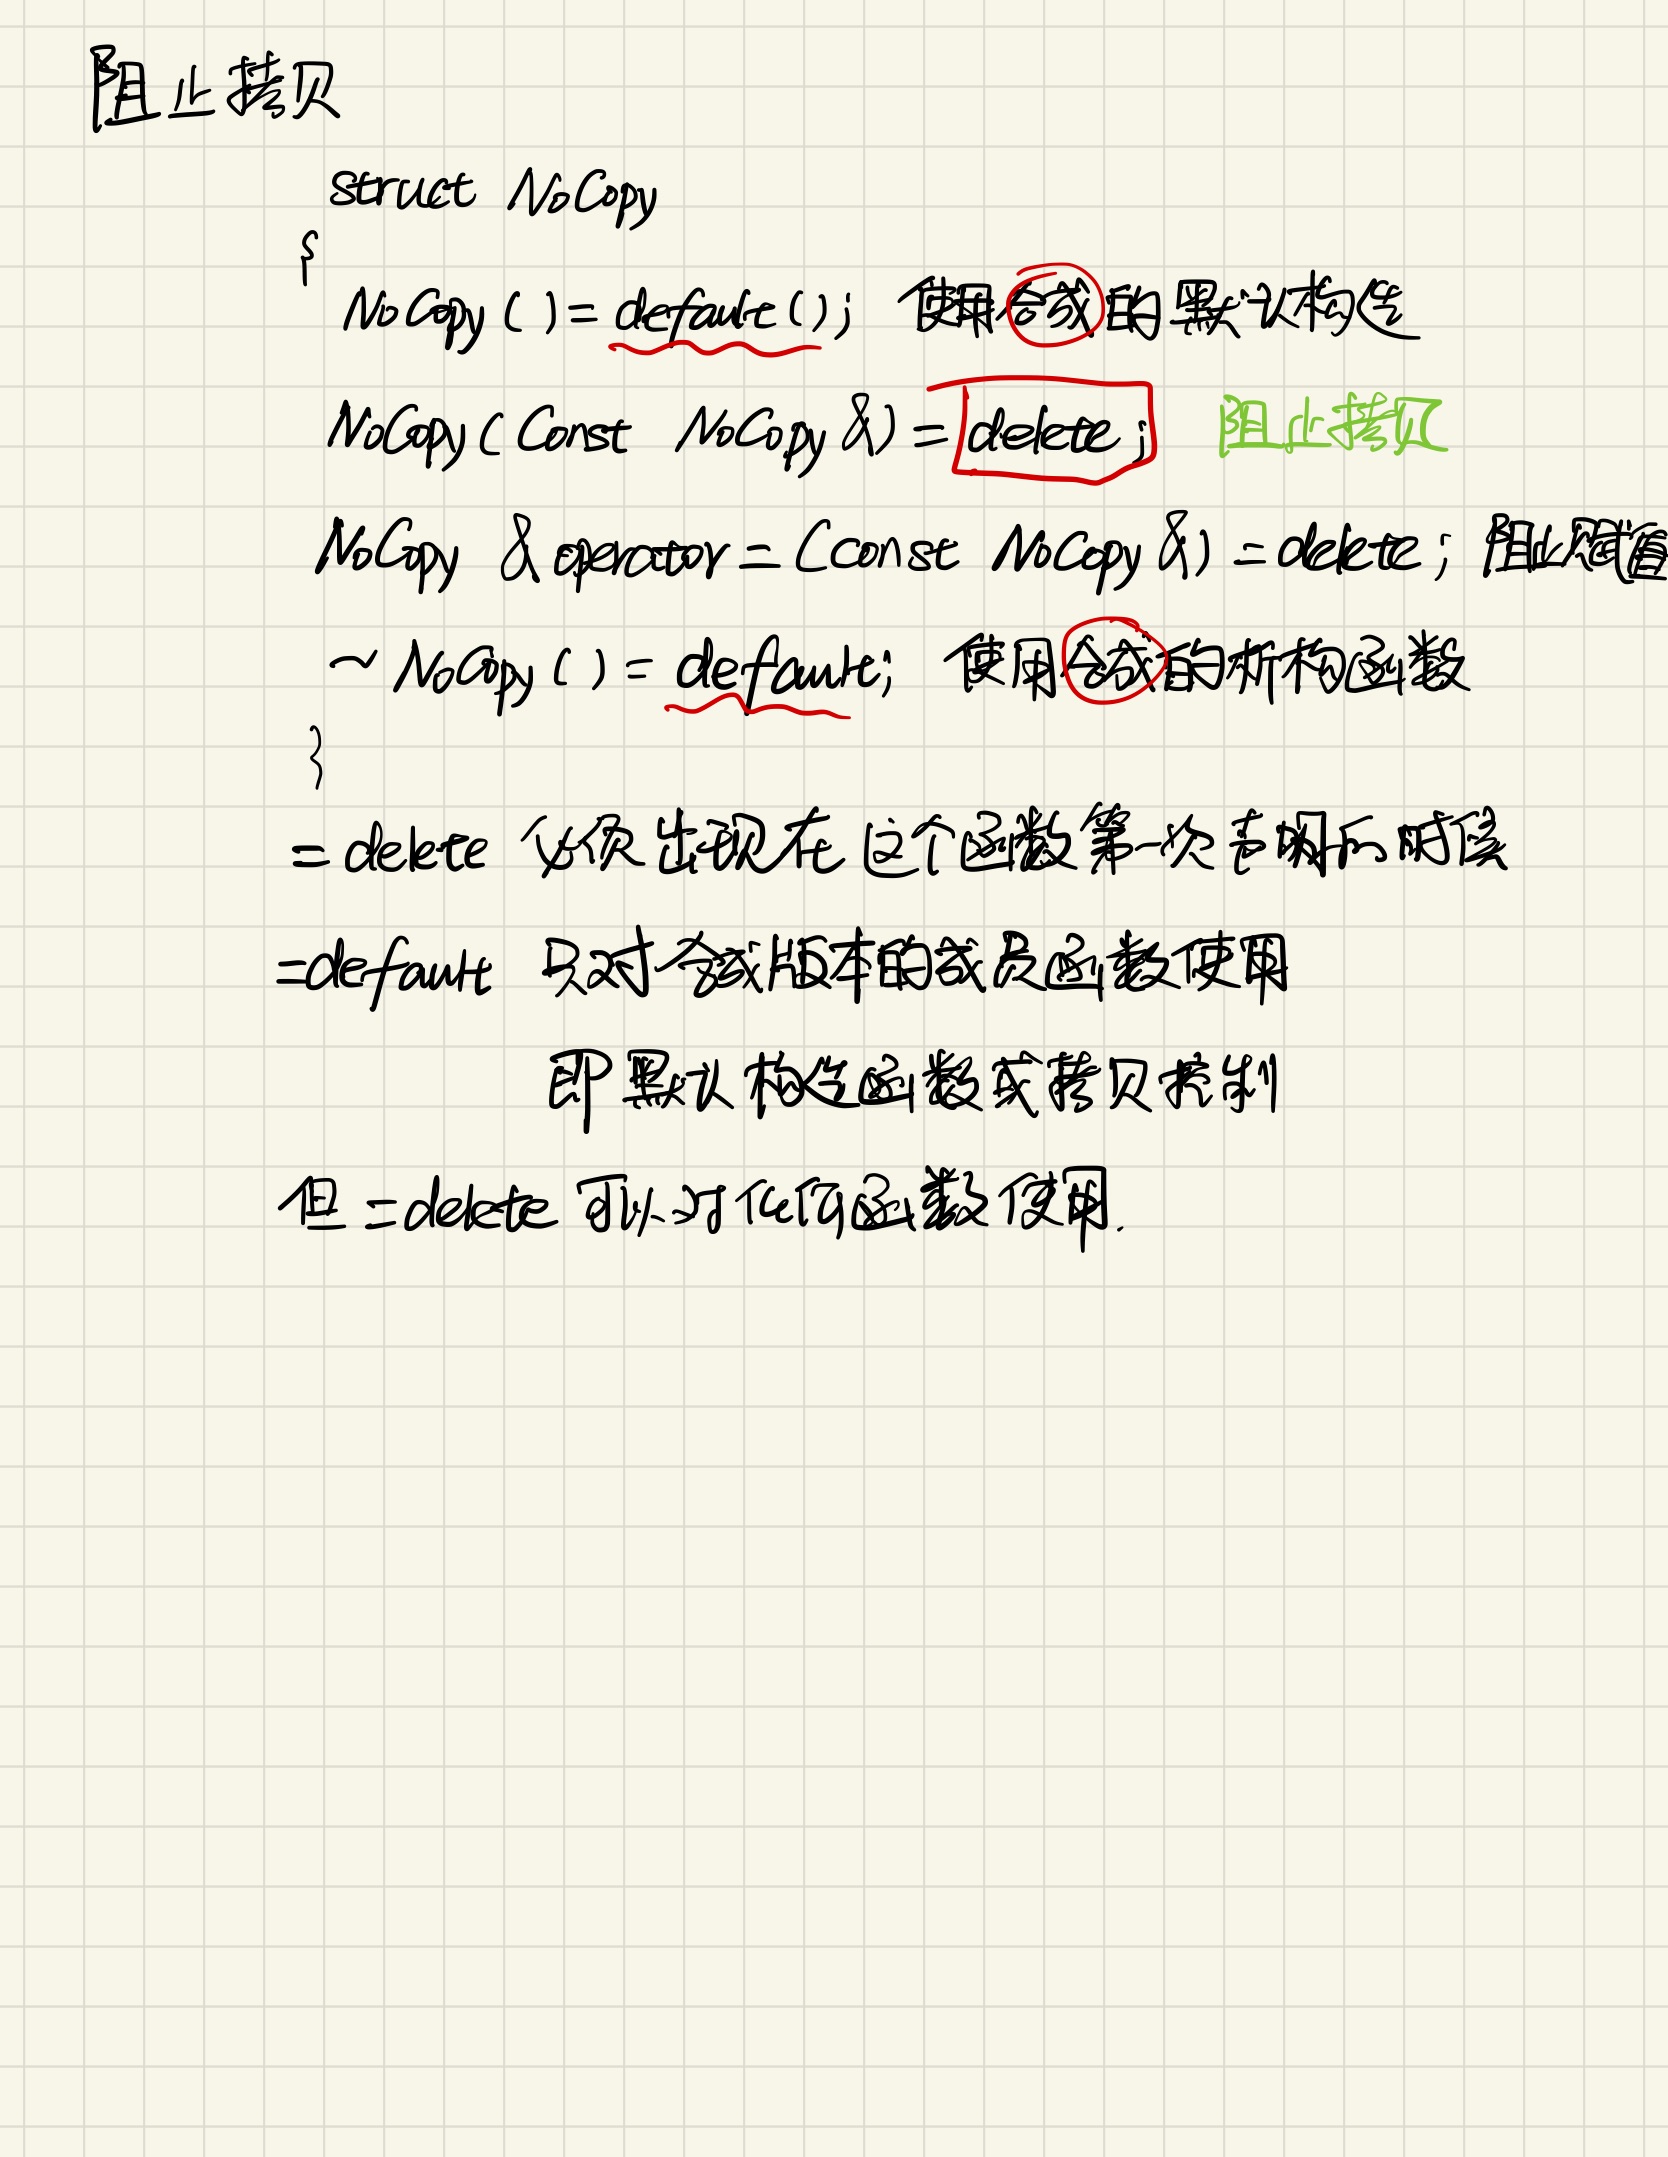 阻止拷贝
struct NoCopy
{
NoCopy()=default(); 使用合成的默认构造
NoCopy(Const NoCopy &)=delete; 阻止拷贝
NoCopy &operator=(const NoCopy &)=delete; 阻止赋值
~NoCopy()=default; 使用合成的析构函数
}
=delete 必须出现在这个函数第一次声明的时候
=default 只对合成版本的成员函数使用
即默认构造函数或拷贝控制
但=delete可以对任何函数使用.